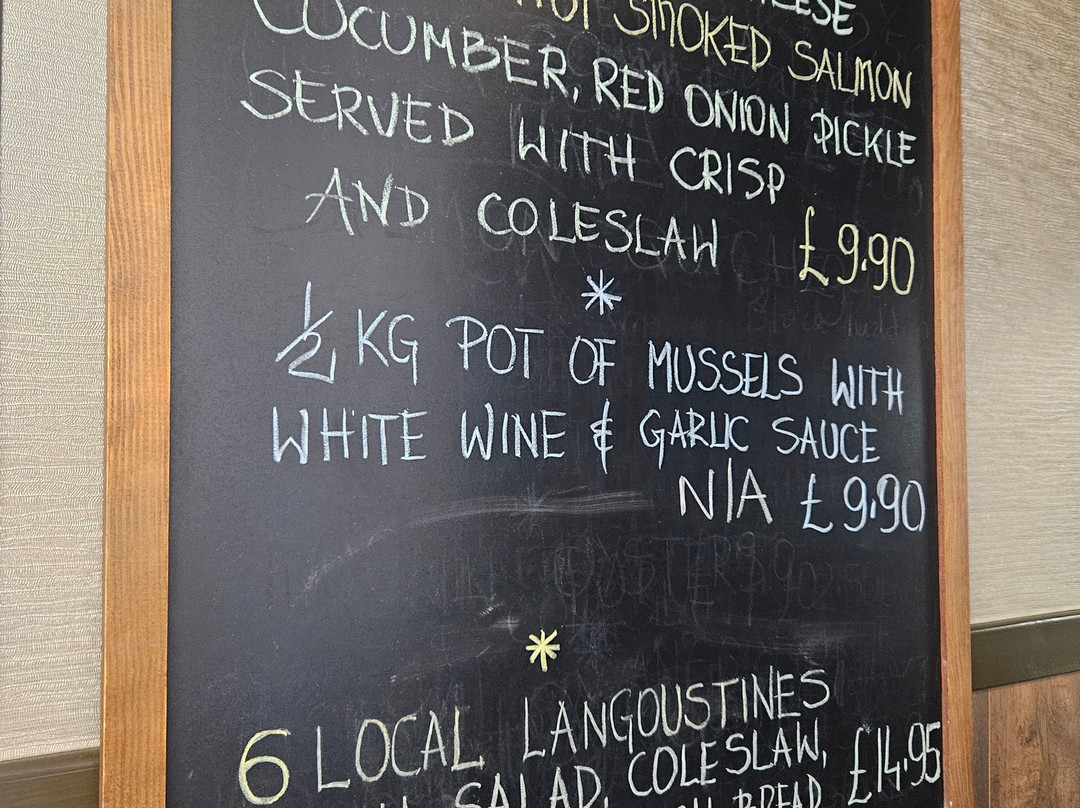 HOT SMOKED SALMON
COCUMBER, RED ONION PICKLE
SERVED WITH CRISP
AND COLESLAW £9.90
*
½ KG POT OF MUSSELS WITH
WHITE WINE & GARLIC SAUCE
N/A £9.90
*
6 LOCAL LANGOUSTINES
SALAD, COLESLAW, £14.95
BREAD